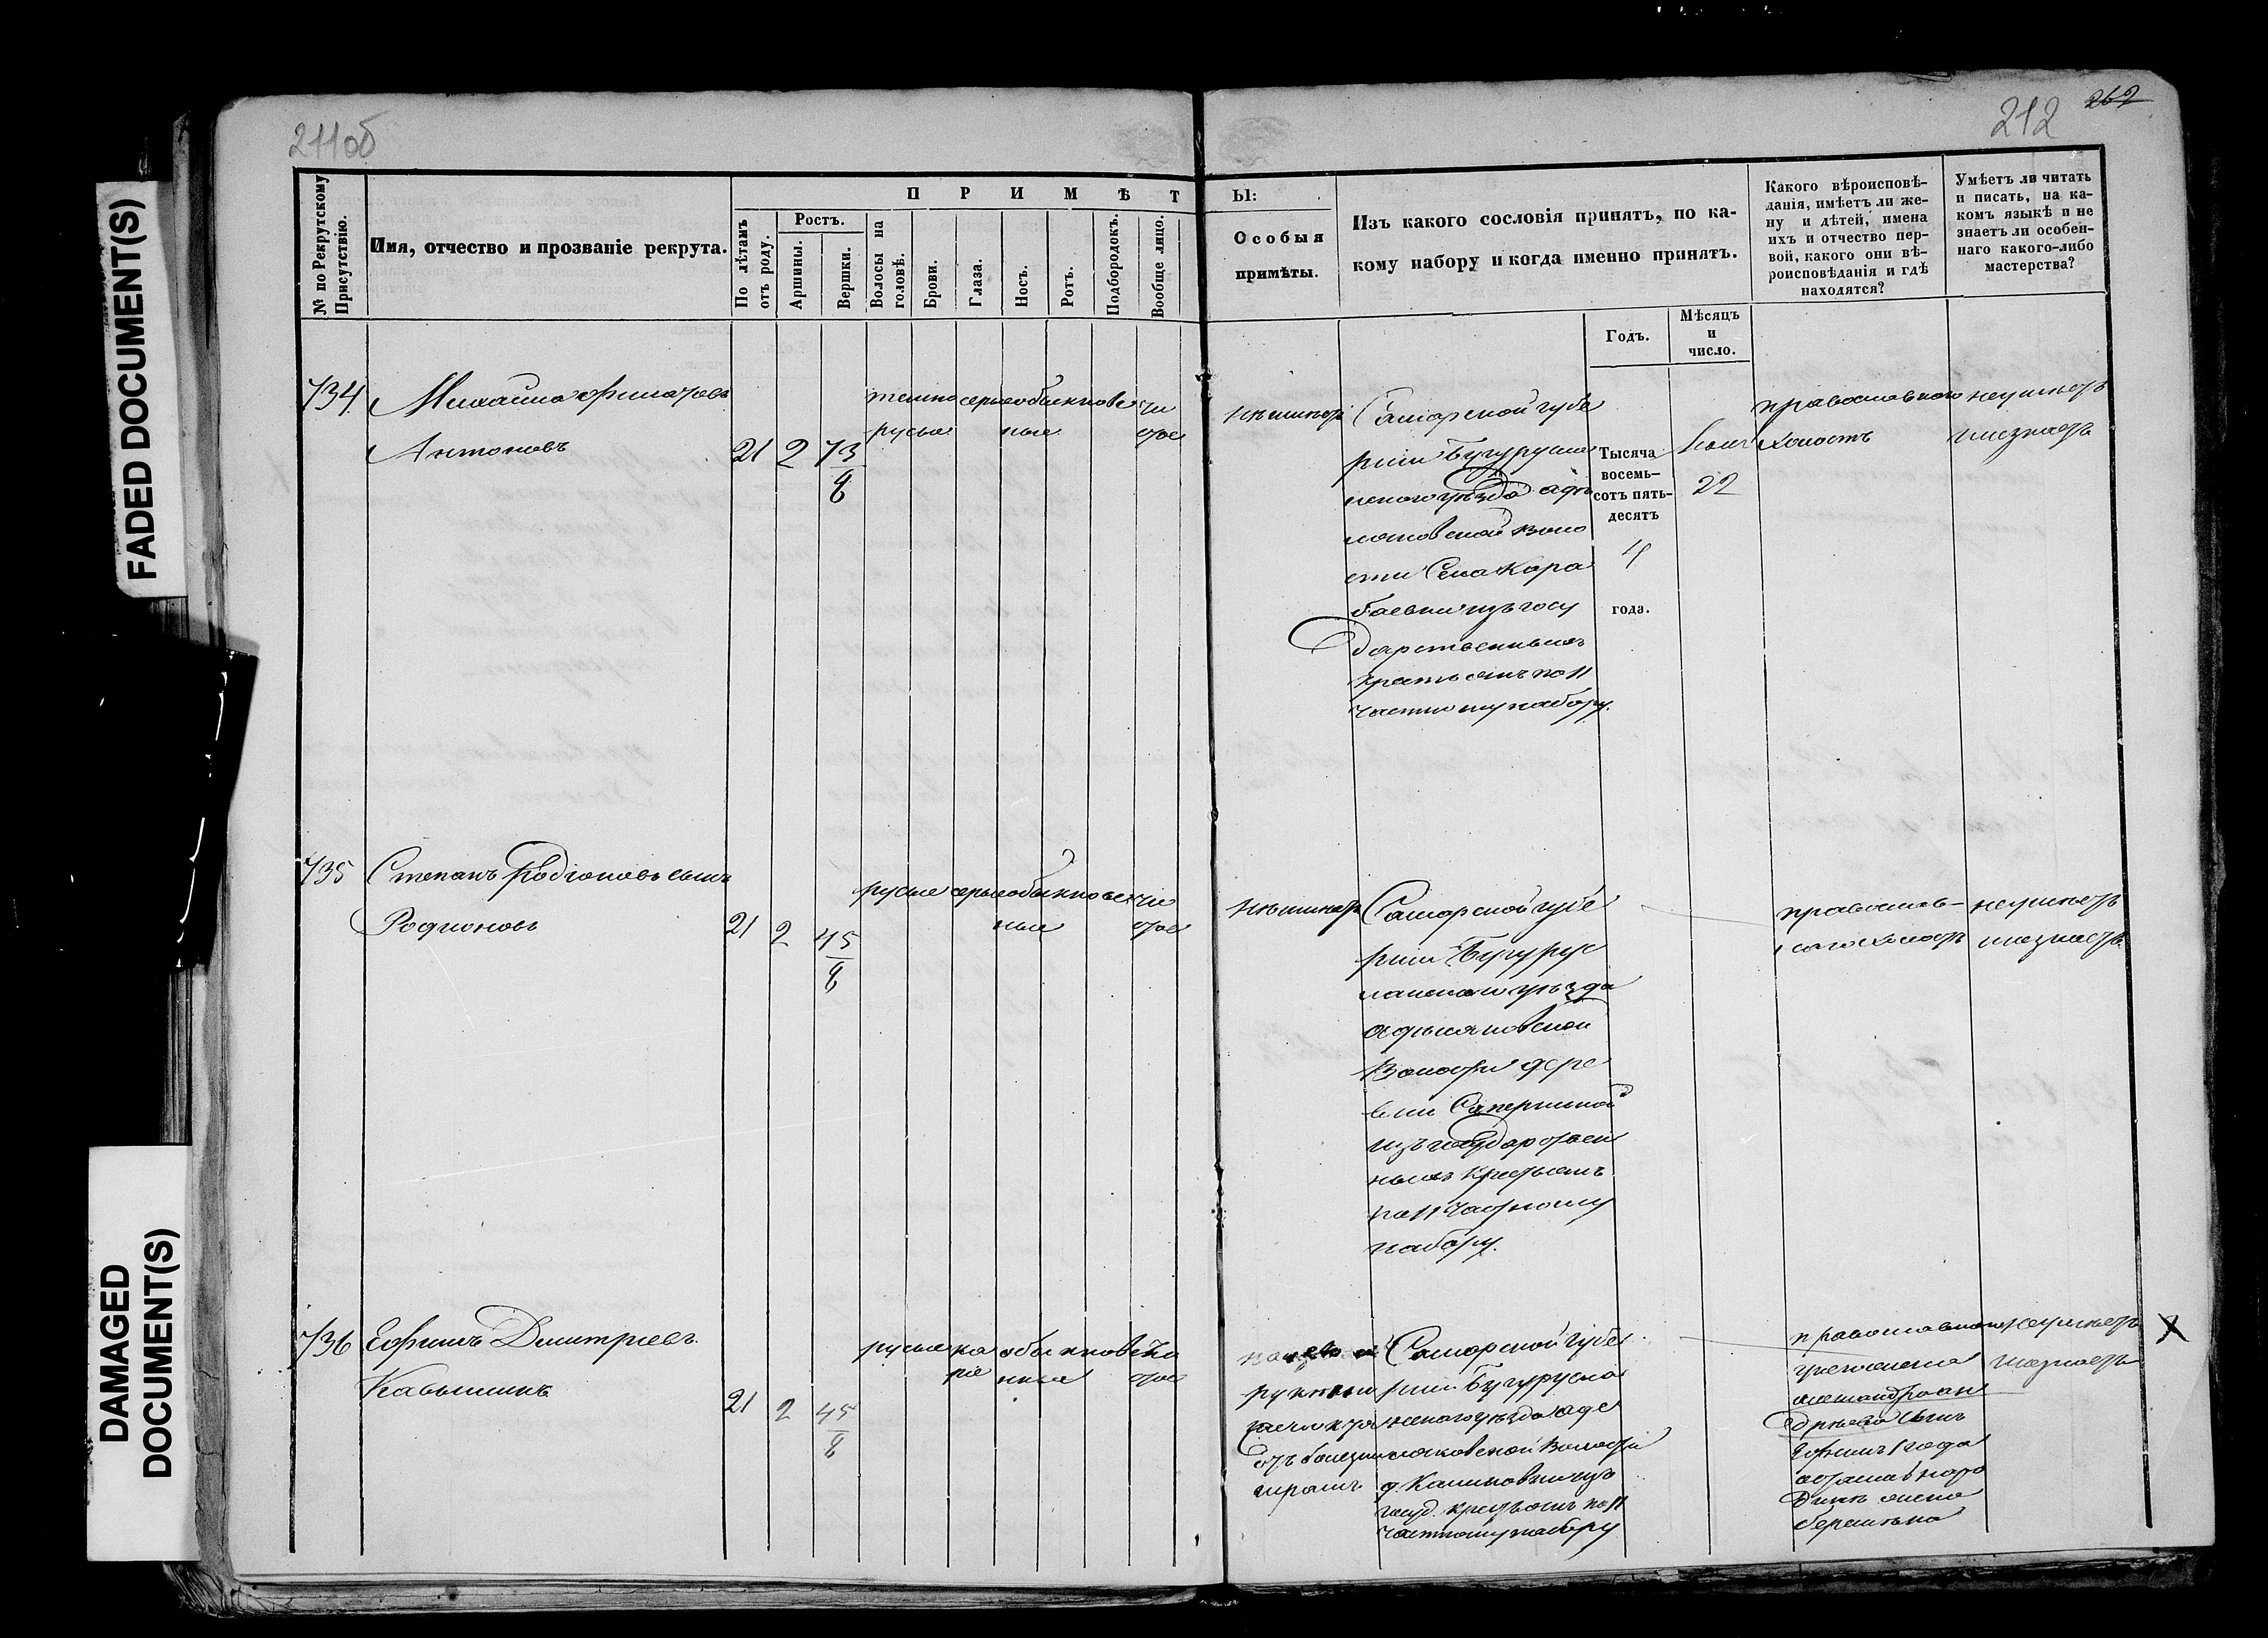 FADED DOCUMENT(S)
DAMAGED
DOCUMENT(S)
211об
212
262
№ по Рекрутскому
Присутствію.
Имя, отчество и прозваніе рекрута.
П Р И М Ѣ Т
Ы:
По лѣтамъ
отъ роду.
Ростъ.
Аршины.
Вершки.
Волосы на
головѣ.
Брови.
Глаза.
Носъ.
Ротъ.
Подбородокъ.
Вообще лицо.
Особыя
примѣты.
Изъ какого сословія принятъ, по ка-
кому набору и когда именно принятъ.
Годъ.
Мѣсяцъ
и
число.
Какого вѣроисповѣ-
данія, имѣетъ ли же-
ну и дѣтей, имена
ихъ и отчество пер-
вой, какого они вѣ-
роисповѣданія и гдѣ
находятся?
Умѣетъ ли читать
и писать, на ка-
комъ языкѣ и не
знаетъ ли особен-
наго какого-либо
мастерства?
734
Михаила Филатовъ
Антоновъ
21 2 73/8
темно
русые
серые
обыкновен
ные
чи
стое
неимѣетъ
Самарской губе
рніи Бугурусла
нскаго уѣзда адѣ
ляковской воло
сти Села Кара
баевки изъ госу
дарственныхъ
крестьянъ по 11
частному набору.
Тысяча
восемь-
сотъ пять-
десятъ
4
года.
22
православнаго
холостъ
неумѣетъ
инезнаетъ
735
Степанъ Родіоновъ сынъ
Родионовъ
21 2 45/8
русые
серые
обыкновен
ные
чи
стое
неимѣетъ
Самарской губе
рніи Бугурус
ланскаго уѣзда
адѣляковской
Волости дере
вни Саперкиной
изъ государствен
ныхъ крестьянъ
по 11 частному
набору.
православ-
наго холостъ
неумѣетъ
инезнаетъ
736
Ефимъ Димитріевъ
21 2 45/8
русые
ка
ріе
обыкновен
ныя
чи
стое
на левой
руке
отъ болезни
шрамъ
Самарской губе
рніи Бугурусла
нскаго уѣзда аде
ляковской Волости
д. Калиновки изъ
госуд. крестьянъ по 11
частному набору
православнаго
у него жена
александра ан
дреева сынъ
Ефимъ 1 года
осталась на ро
динѣ жена
беременна
неумѣетъ
инезнаетъ
X